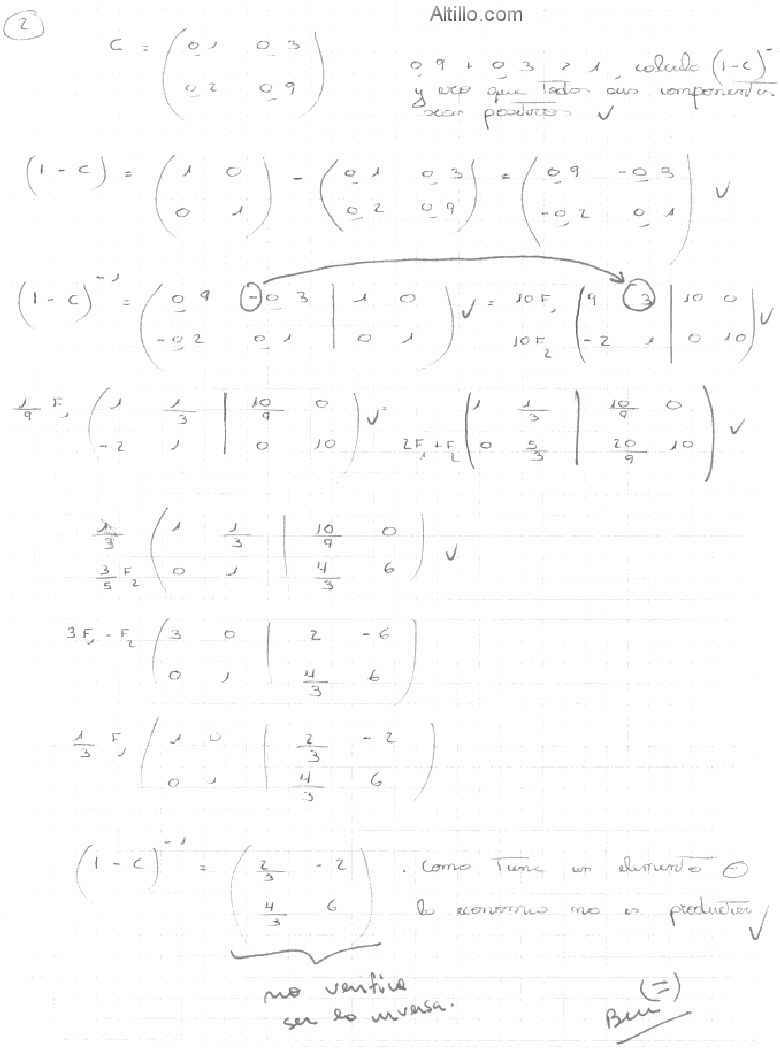 Altillo.com
2
C = ( 0,1 0,3
0,2 0,9 )
0,9 + 0,3 > 1, calculo (1 - C)⁻
y veo que todos sus componentes
sean positivos ✓
(1 - C) = ( 1 0
0 1 ) - ( 0,1 0,3
0,2 0,9 ) = ( 0,9 -0,3
-0,2 0,1 ) ✓
(1 - C)⁻¹ = ( 0,9 -0,3 | 1 0
-0,2 0,1 | 0 1 ) ✓ = 10F₁ 10F₂ ( 9 3 | 10 0
-2 1 | 0 10 ) ✓
1/9 F₁ ( 1 1/3 | 10/9 0
-2 1 | 0 10 ) ✓ = 2F₁+F₂ ( 1 1/3 | 10/9 0
0 5/3 | 20/9 10 ) ✓
1/3 ( 1 1/3 | 10/9 0
3/5 F₂ 0 1 | 4/3 6 ) ✓
3F₁ - F₂ ( 3 0 | 2 -6
0 1 | 4/3 6 )
1/3 F₁ ( 1 0 | 2/3 -2
0 1 | 4/3 6 )
(1 - C)⁻¹ = ( 2/3 -2
4/3 6 ) . Como tiene un elemento ⊖
la economia no es productiva ✓
no verifica
ser la inversa.
Bien (=)